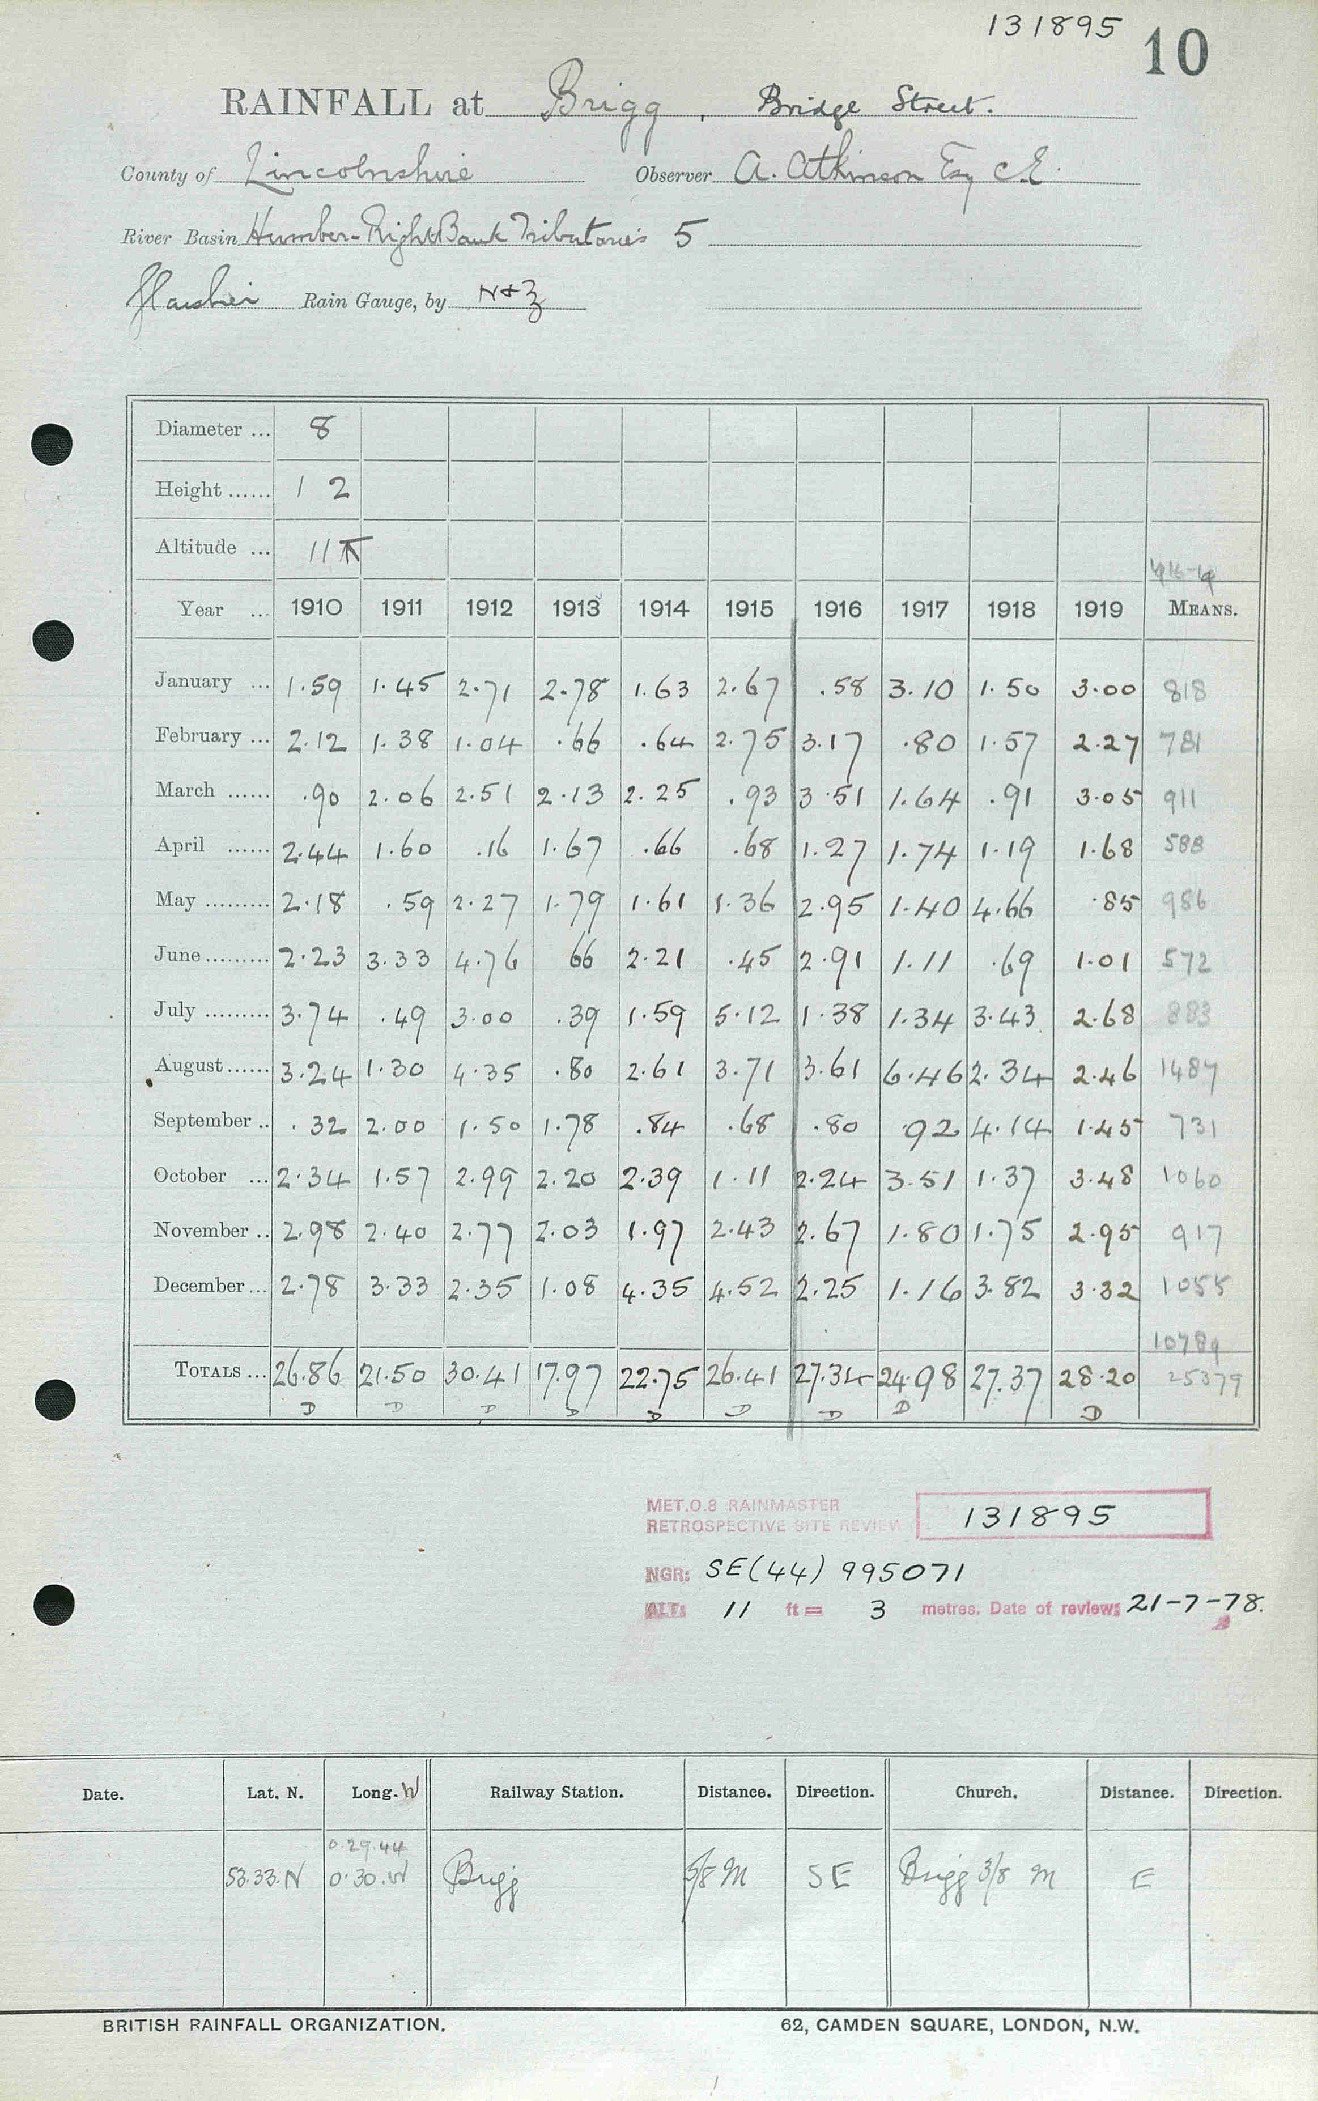 131895
10
RAINFALL at Brigg, Bridge Street.
County of Lincolnshire Observer A. Atkinson Esq C.E.
River Basin Humber-Right Bank Tributaries 5
Glaisher Rain Gauge, by N & Z
Diameter ... 8
Height ...... 1 2
Altitude ... 11 ft
1916-19
Year ... 1910 1911 1912 1913 1914 1915 1916 1917 1918 1919 MEANS.
January ... 1.59 1.45 2.71 2.78 1.63 2.67 .58 3.10 1.50 3.00 818
February ... 2.12 1.38 1.04 .66 .64 2.75 3.17 .80 1.57 2.27 781
March ...... .90 2.06 2.51 2.13 2.25 .93 3.51 1.64 .91 3.05 911
April ...... 2.44 1.60 .16 1.67 .66 .68 1.27 1.74 1.19 1.68 588
May ......... 2.18 .59 2.27 1.79 1.61 1.36 2.95 1.40 4.66 .85 986
June ......... 2.23 3.33 4.76 66 2.21 .45 2.91 1.11 .69 1.01 572
July ......... 3.74 .49 3.00 .39 1.59 5.12 1.38 1.34 3.43 2.68 883
August ...... 3.24 1.30 4.35 .80 2.61 3.71 3.61 6.46 2.34 2.46 1487
September .. .32 2.00 1.50 1.78 .84 .68 .80 .92 4.14 1.45 731
October ... 2.34 1.57 2.99 2.20 2.39 1.11 2.24 3.51 1.37 3.48 1060
November .. 2.98 2.40 2.77 2.03 1.97 2.43 2.67 1.80 1.75 2.95 917
December ... 2.78 3.33 2.35 1.08 4.35 4.52 2.25 1.16 3.82 3.32 1055
10789
TOTALS ... 26.86 21.50 30.41 17.97 22.75 26.41 27.34 24.98 27.37 28.20 25379
D D D D D D D D D
MET.O.8 RAINMASTER
RETROSPECTIVE SITE REVIEW 131895
NGR: SE(44) 995071
ALT: 11 ft = 3 metres. Date of review: 21-7-78.
Date. Lat. N. Long. W Railway Station. Distance. Direction. Church. Distance. Direction.
0.29.44
53.33.N 0.30.W Brigg 5/8 M SE Brigg 3/8 M E
BRITISH RAINFALL ORGANIZATION. 62, CAMDEN SQUARE, LONDON, N.W.